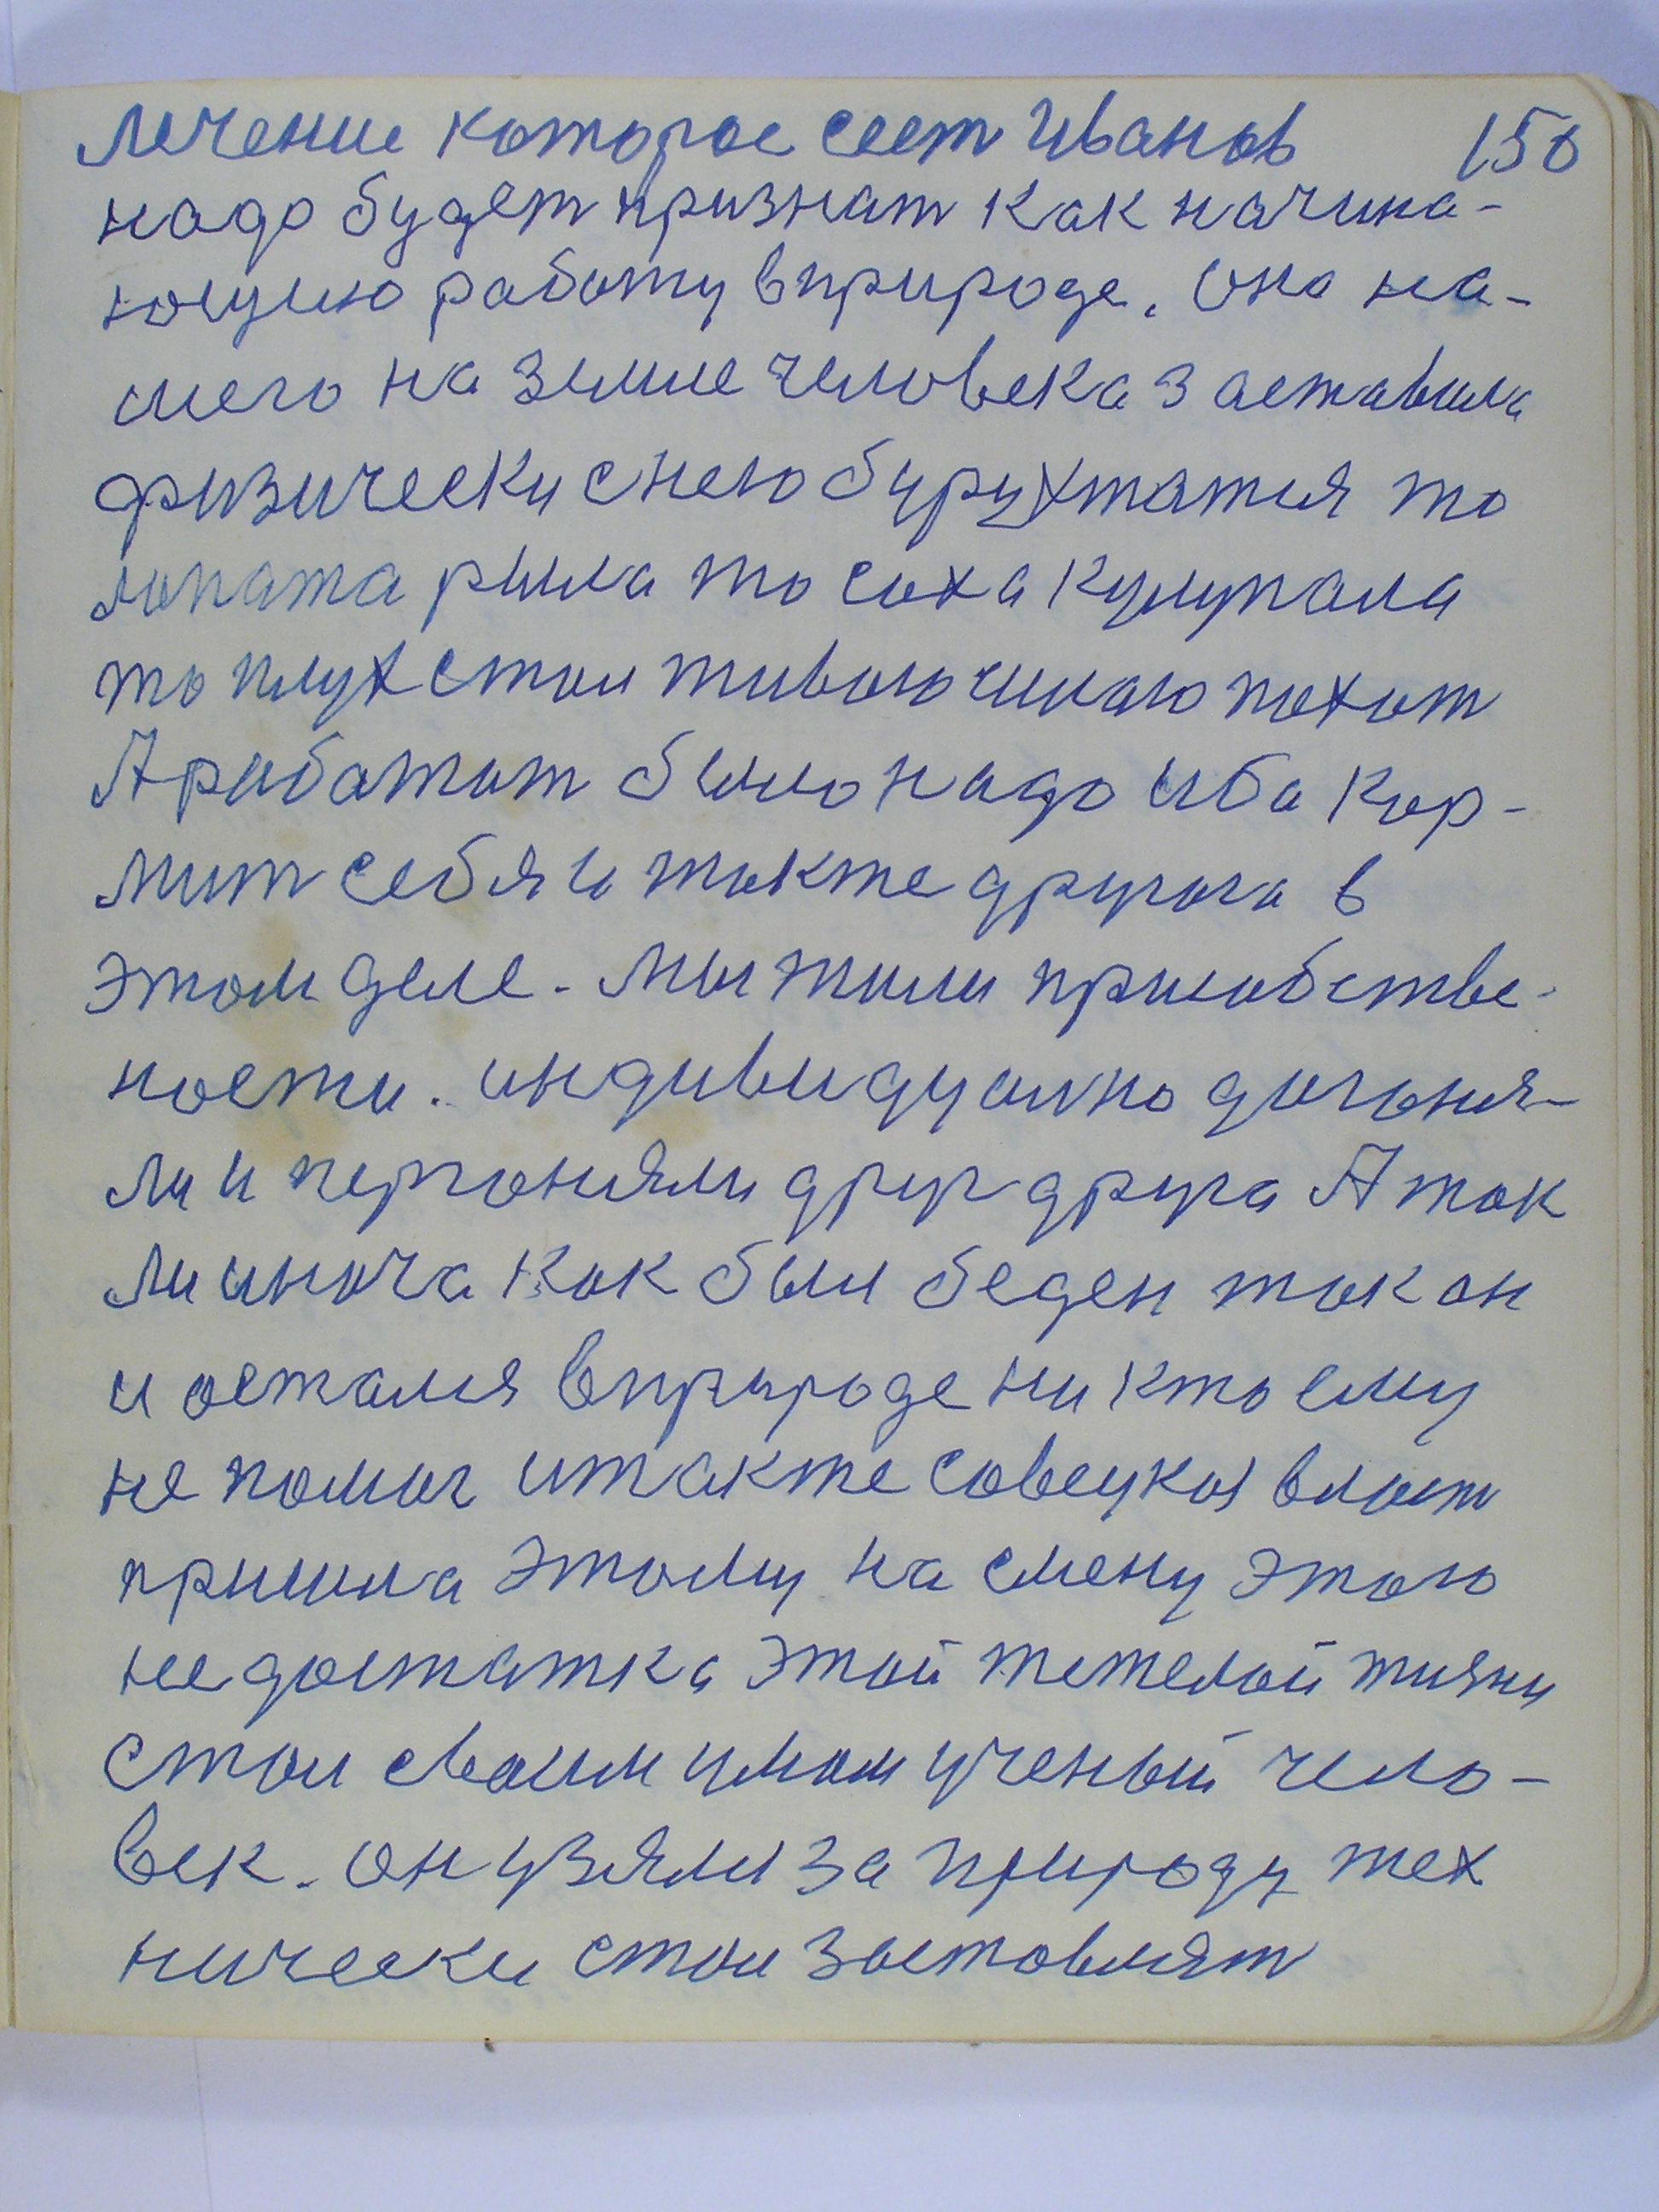 лечение которое сеет Иванов 150
надо будет признат как начина-
ющую работу в природе. Она на-
шего на земле человека заставила
физически с нею бурухтатся то
лопата рыла то соха кулупала
то плух стал тивою чилою похот
А работат было надо иба кор-
мит себя и также другога в
этом деле. Мы жили присобстве-
ности. индивидуално дагоня-
ли и пергоняли друг друга А так
ли иноча как был беден так он
и остался в природе ни кто ему
не помог итакже совецкоя власт
пришла этому на смену этою
недостатка этой тежелой жизни
стал сваим умом ученый чело-
век. он узялся за природу тех
нически стал заставлят